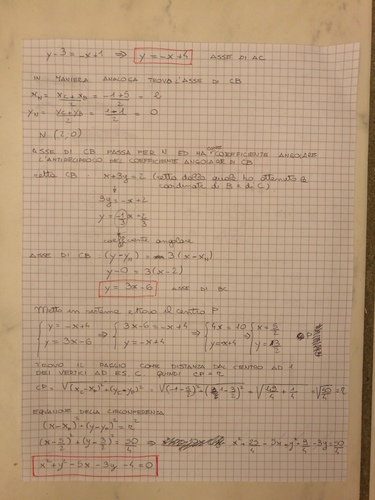 y-3 = -x+1 ⇒ y = -x+4 ASSE DI AC
IN MANIERA ANALOGA TROVO L'ASSE DI CB
xN = (xC+xB)/2 = (-1+5)/2 = 2
yN = (yC+yB)/2 = 0
N (2,0)
ASSE DI CB PASSA PER N ED HA COEFFICIENTE ANGOLARE
L'ANTIRECIPROCO DEL COEFFICIENTE ANGOLARE DI CB
retta CB : x+3y=2 (retta dalla quale ho ottenuto le
coordinate di B e di C)
3y = -x+2
y = -1/3 x + 2/3
coefficiente angolare
ASSE DI CB (y-yN) = 3(x-xN)
y-0 = 3(x-2)
y = 3x-6 ASSE DI BC
Metto in sistema e trovo il centro P
{ y = -x+4 ⇒ { 3x-6 = -x+4 ⇒ { 4x = 10 ⇒ { x = 5/2
{ y = 3x-6 { y = -x+4 { y = -x+4 { y = 3/2
TROVO IL RAGGIO COME DISTANZA DAL CENTRO AD 1
DEI VERTICI AD ES. C QUINDI CP = r
EQUAZIONE DELLA CIRCONFERENZA
(x-xP)² + (y-yP)² = r²
x²+y²-5x-3y-4=0